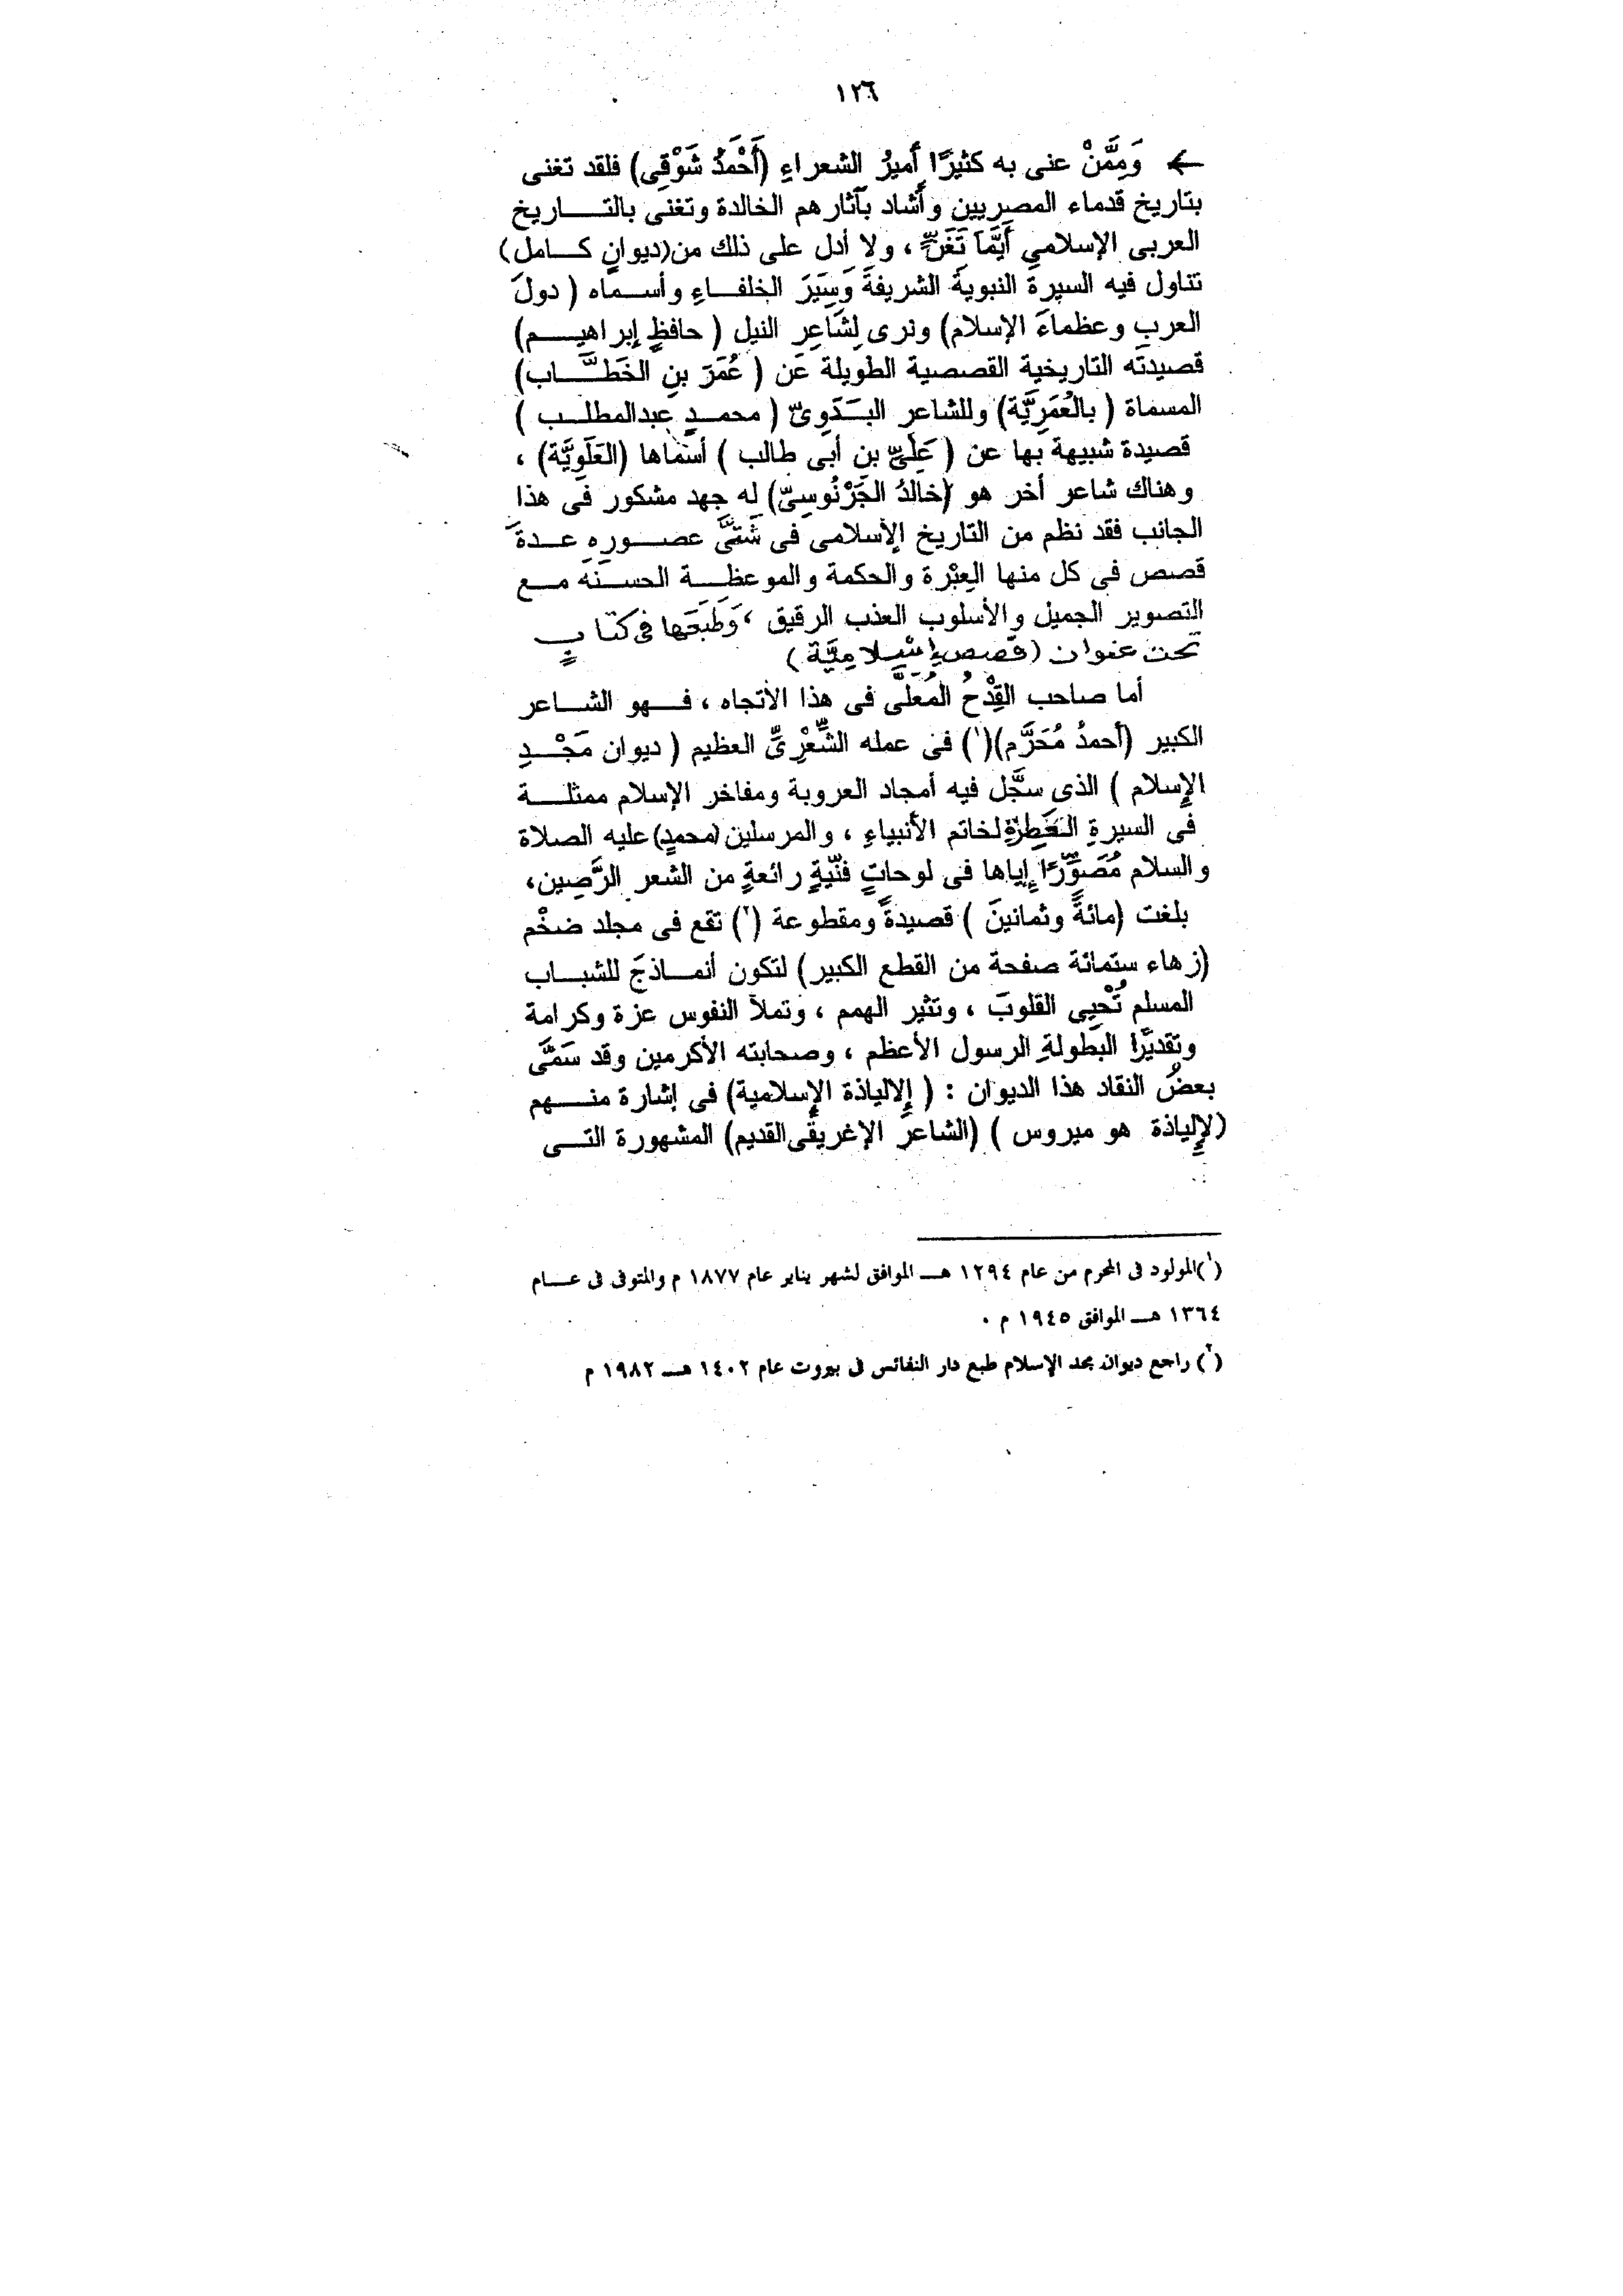 ١٢٦
← وَمِمَّنْ عنى به كثيرًا أميرُ الشعراءِ (أَحْمَدُ شَوْقِى) فلقد تغنى
بتاريخ قدماء المصريين وأشاد بآثارهم الخالدة وتغنى بالتـــاريخ
العربى الإسلامىِ أَيَّمَا تَغَنٍّ ، ولا أدل على ذلك من (ديوانٍ كـــامل)
تناول فيه السيرة النبويةَ الشريفةَ وَسِيَرَ الخلفــاءِ وأسـماه ( دولَ
العربِ وعظماءَ الإسلام) ونرى لِشَاعِرِ النيل ( حافظٍ إبراهيـــم)
قصيدتَه التاريخية القصصية الطويلة عَن ( عُمَرَ بنِ الخَطَّــاب)
المسماة ( بالعُمَرِيَّة) وللشاعر البَـدَوِىّ ( محمــدٍ عبدالمطلــب )
قصيدة شبيهة بها عن ( عَلِىِّ بنِ أبى طالب ) أسْمَاها (العَلَوِيَّة) ،
وهناك شاعر أخر هو (خالدُ الجَرْنُوسِىّ) له جهد مشكور فى هذا
الجانب فقد نظم من التاريخ الإسلامى فى شَتَّى عصـــورِهِ عــدةَ
قصص فى كل منها العِبْرة والحكمة والموعظــة الحسـنه مــع
التصوير الجميل والأسلوب العذب الرقيق ، وَطَبَعَها فى كتابٍ
تحت عنوان (قصص إسْلامِيَّة)
أما صاحب القِدْحُ المُعَلَّى فى هذا الأتجاه ، فـــهو الشـــاعر
الكبير (أحمدُ مُحَرَّم)(١) فى عمله الشِّعْرِىِّ العظيم ( ديوان مَجْــدِ
الإسلام ) الذى سجَّل فيه أمجاد العروبة ومفاخر الإسلام ممثلـــة
فى السيرةِ العَطِرَةِ لخاتم الأنبياءِ ، والمرسلين (محمدٍ) عليه الصلاة
والسلام مُصَوِّرًا إياها فى لوحاتٍ فنّيةٍ رائعةٍ من الشعر الرَّصِين،
بلغت (مائةً وثمانينَ ) قصيدةً ومقطوعة (٢) تقع فى مجلد ضخْم
(زهاء ستمائة صفحة من القطع الكبير) لتكون أنمـــاذجَ للشبــاب
المسلم تُحْيِى القلوبَ ، وتثير الهمم ، وتملأ النفوس عزة وكرامة
وتقديرًا البطولةِ الرسول الأعظم ، وصحابته الأكرمين وقد سَمَّى
بعضُ النقاد هذا الديوان : ( إلالياذة الإسلامية) فى إشارة منـــهم
(لإلياذة هو ميروس ) (الشاعرَ الإغريقى القديم) المشهورة التـــى
(١)المولود فى المحرم من عام ١٢٩٤ هــ الموافق لشهر يناير عام ١٨٧٧ م والمتوفى فى عــام
١٣٦٤ هــ الموافق ١٩٤٥ م .
(٢) راجع ديوان مجد الإسلام طبع دار النفائس فى بيروت عام ١٤٠٢ هــ ١٩٨٢ م